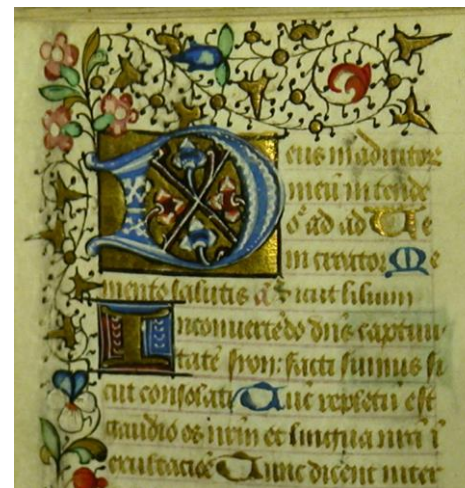 Deus in adiutor
meū intende
dō ad ad Ve
ni creator Me
mento salutis ā Sicut lilium
In conuertēdo dn̄s captiui
tatē syon: facti sumus si
cut consolati Tūc repletū est
gaudio os nr̄m et lingua nr̄a ī
exultaciōe Tunc dicent inter